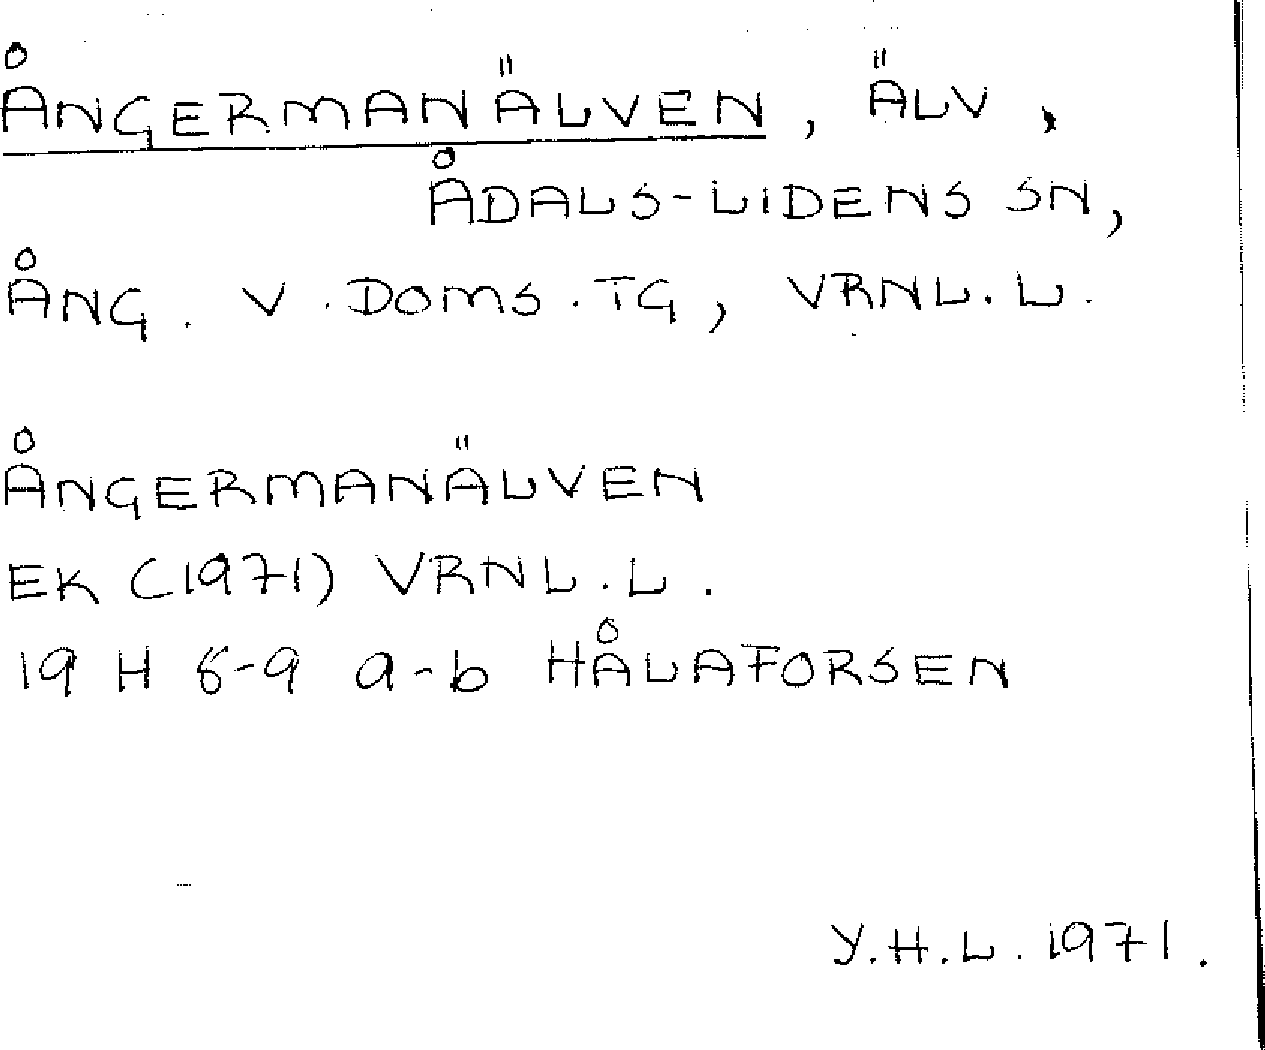 ÅNGERMANÄLVEN, ÄLV,
ÅDALS-LIDENS SN,
ÅNG. V. DOMS. TG, VRNL. L.
ÅNGERMANÄLVEN
EK (1971) VRNL. L.
19 H 8-9 a-b HÅLAFORSEN
Y. H. L. 1971.